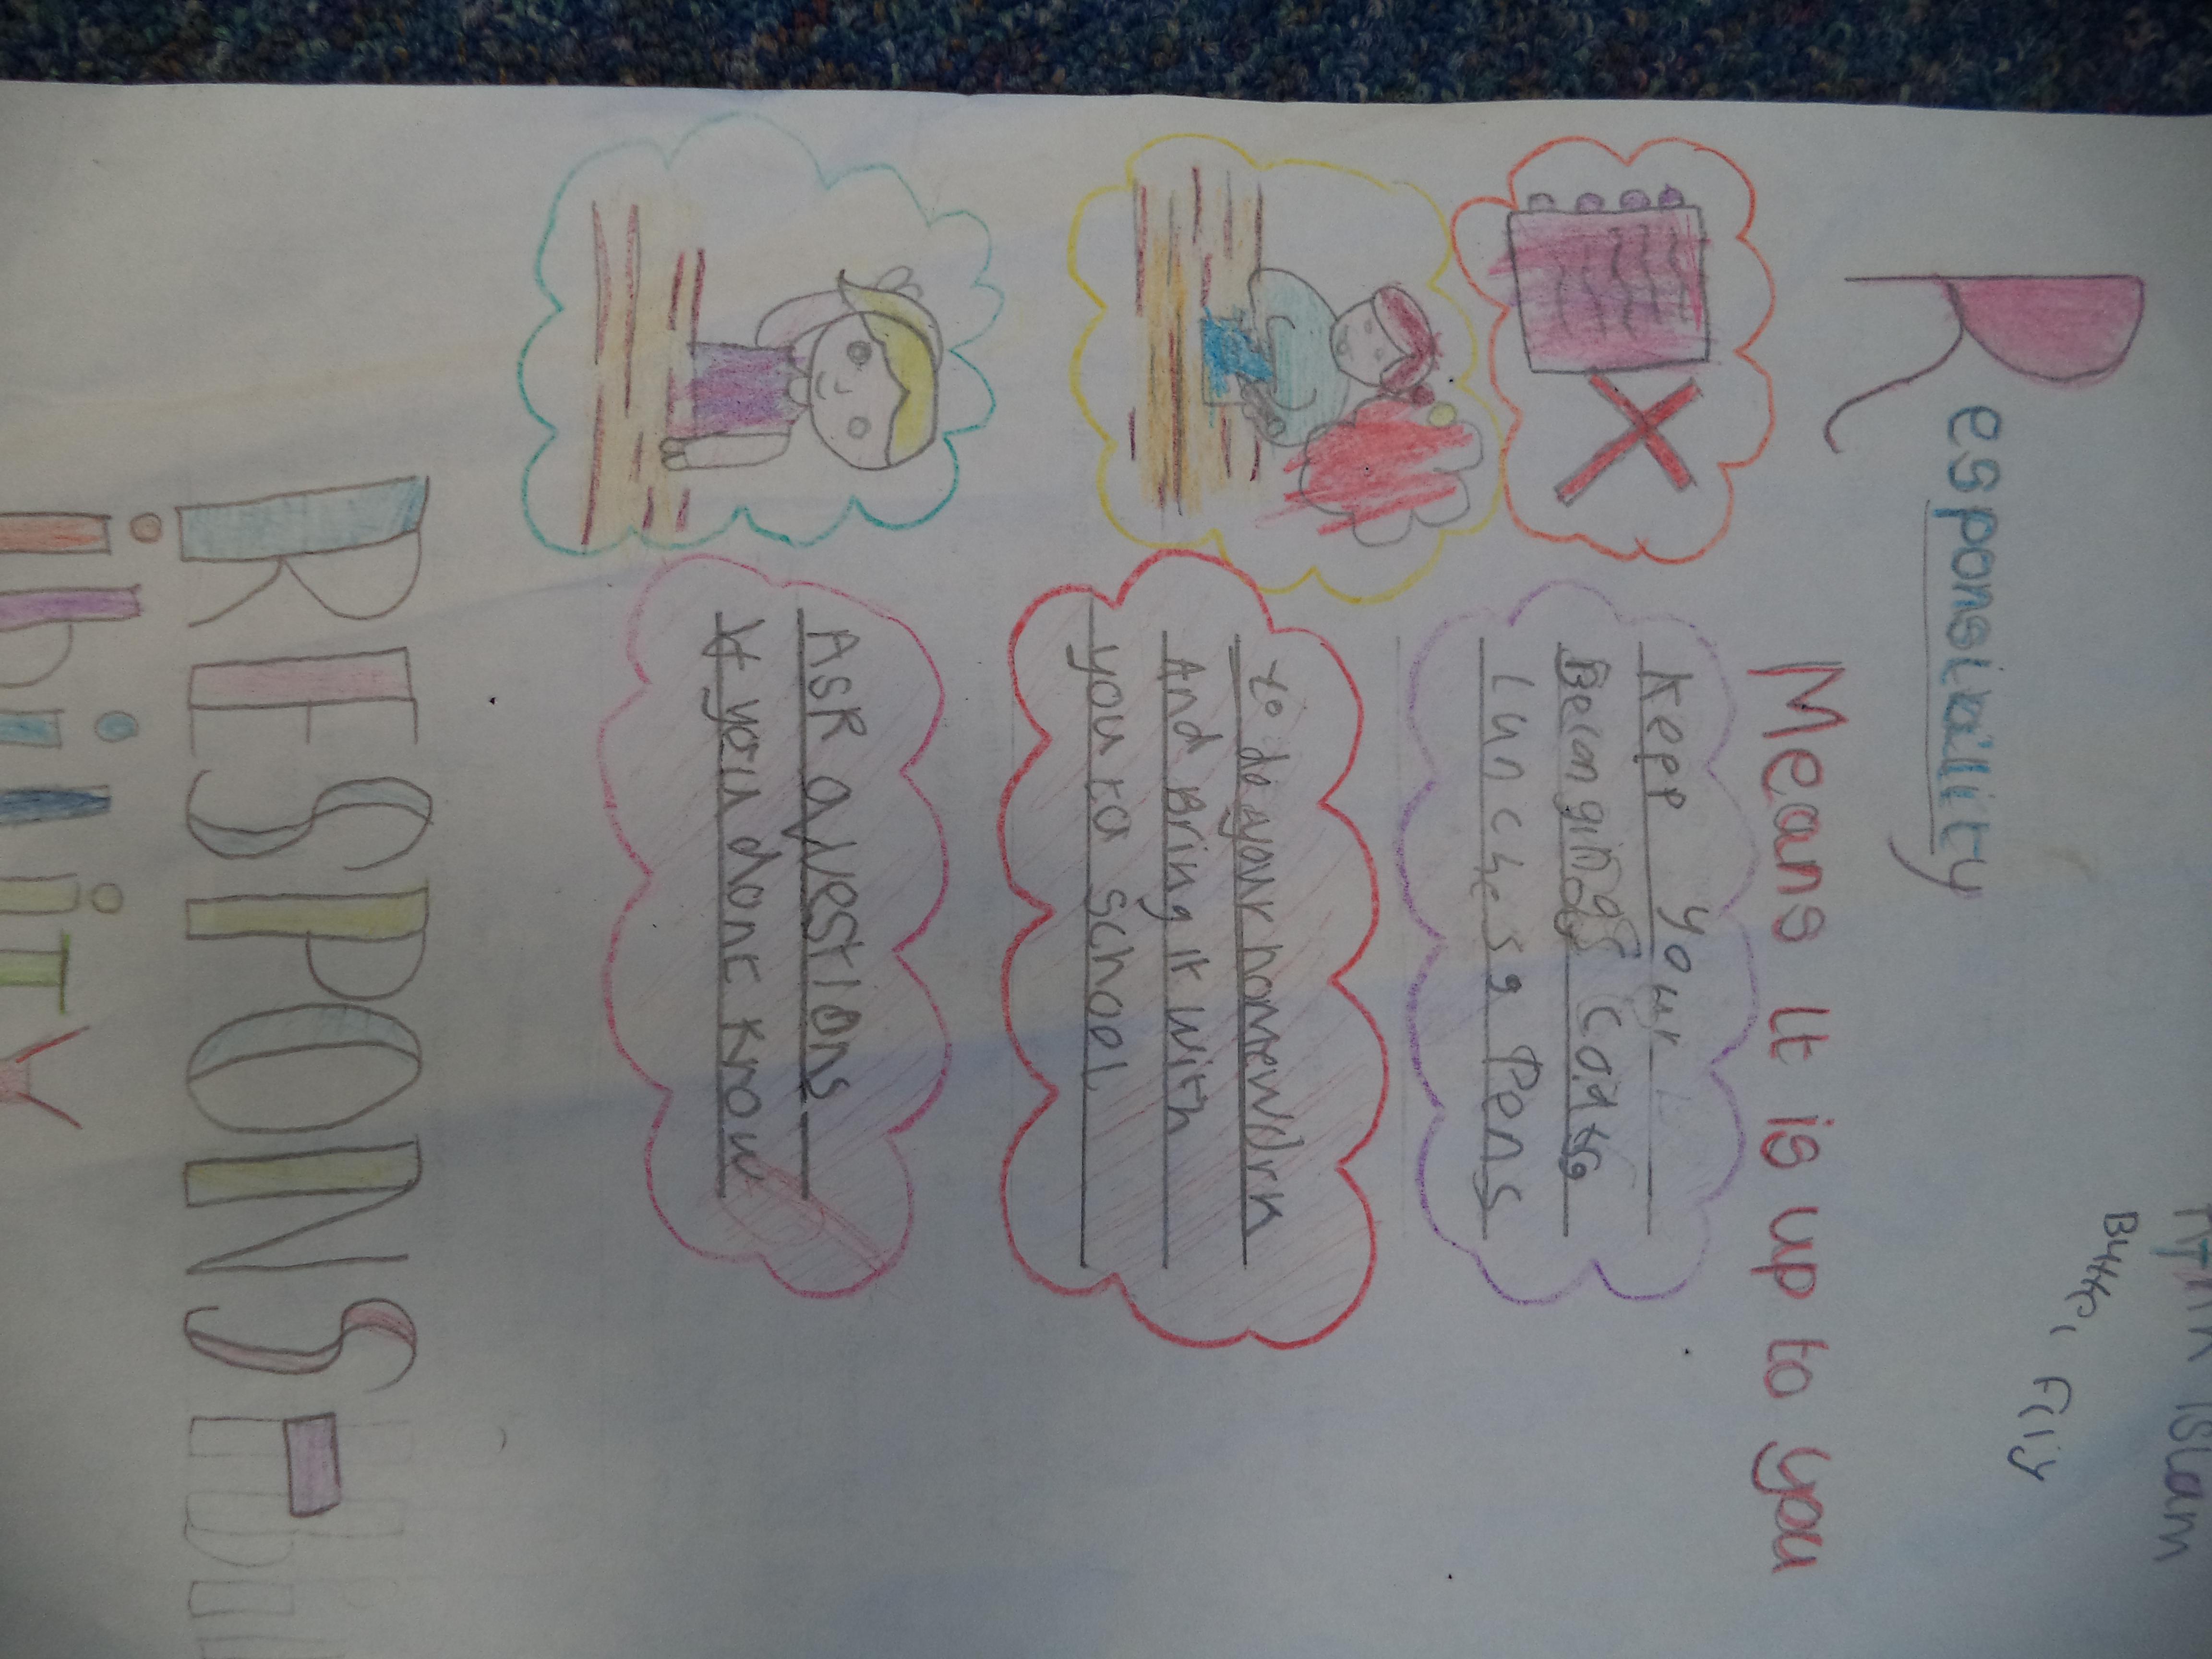 islam
Responsibility
Means It is up to you
Kepp your
Becongings Coats
Lunches, Pens
to do your homework
And Bring it with
you to school
Ask questions
if you dont know
RESPONS-
ibility